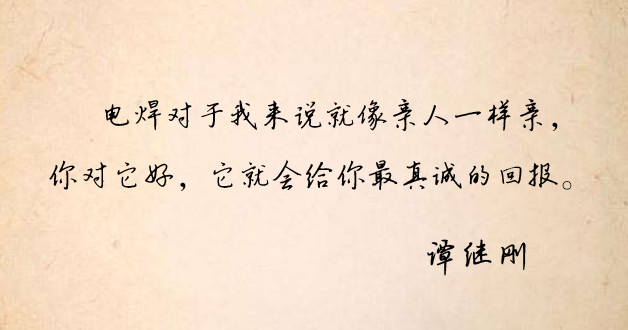 电焊对于我来说就像亲人一样亲，
你对它好，它就会给你最真诚的回报。
谭继刚